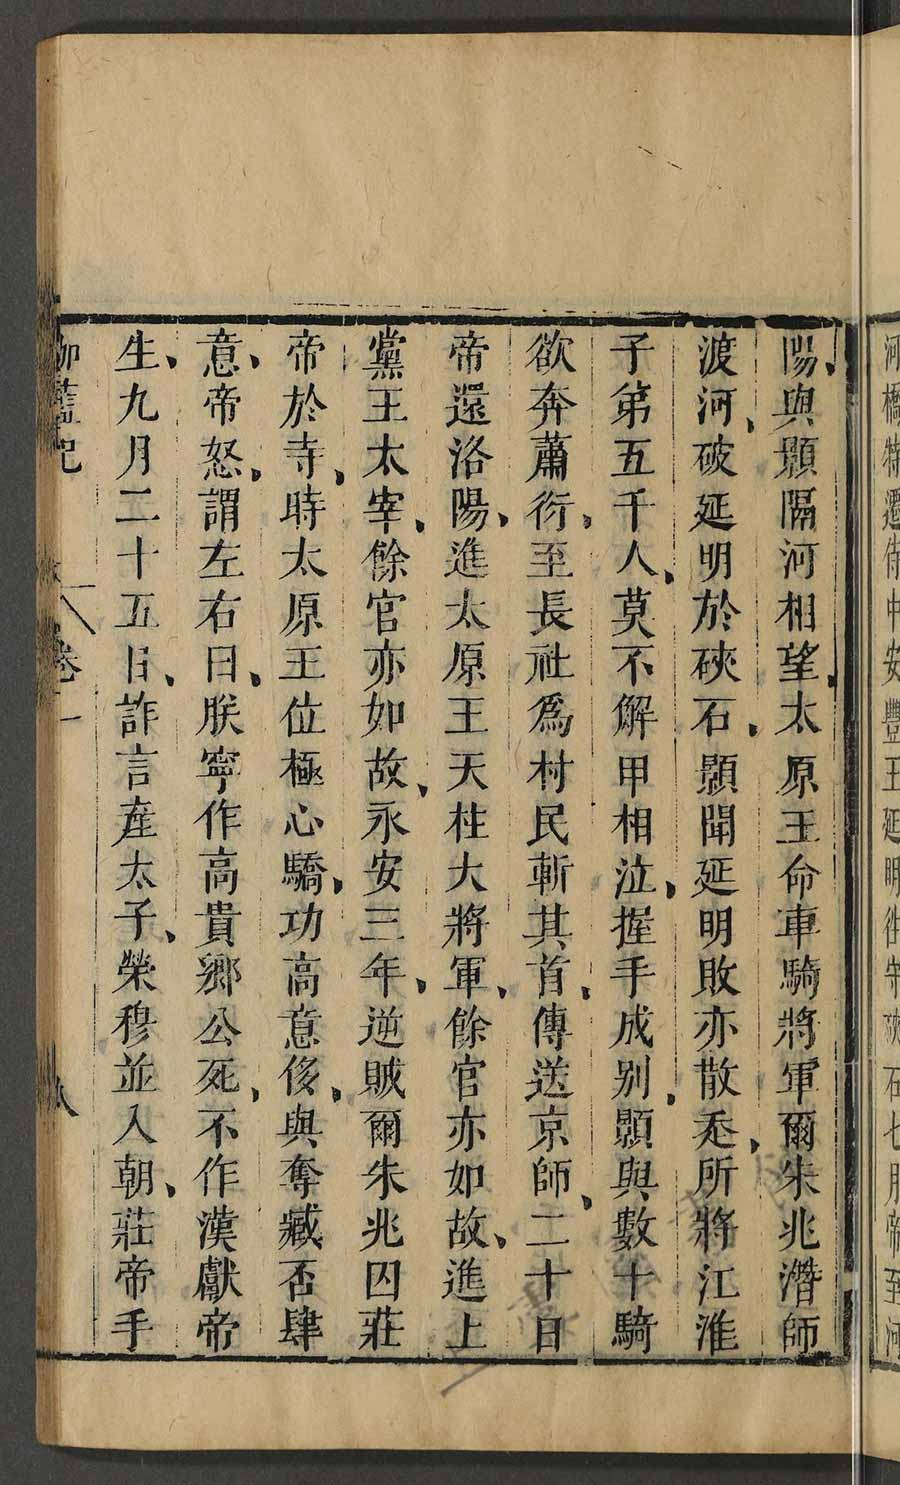 河橋特遷侍中安豐王延明往守硤石七月帝至河
陽與顥隔河相望太原王命車騎將軍爾朱兆潛師
渡河破延明於硤石顥聞延明敗亦散走所將江淮
子弟五千人莫不解甲相泣握手成别顥與數十騎
欲奔蕭衍至長社爲村民斬其首傳送京師二十日
帝還洛陽進太原王天柱大將軍餘官亦如故進上
黨王太宰餘官亦如故永安三年逆賊爾朱兆囚莊
帝於寺時太原王位極心驕功高意侈與奪臧否肆
意帝怒謂左右曰朕寧作高貴鄉公死不作漢獻帝
生九月二十五日詐言産太子榮穆並入朝莊帝手
伽藍記 卷一 八